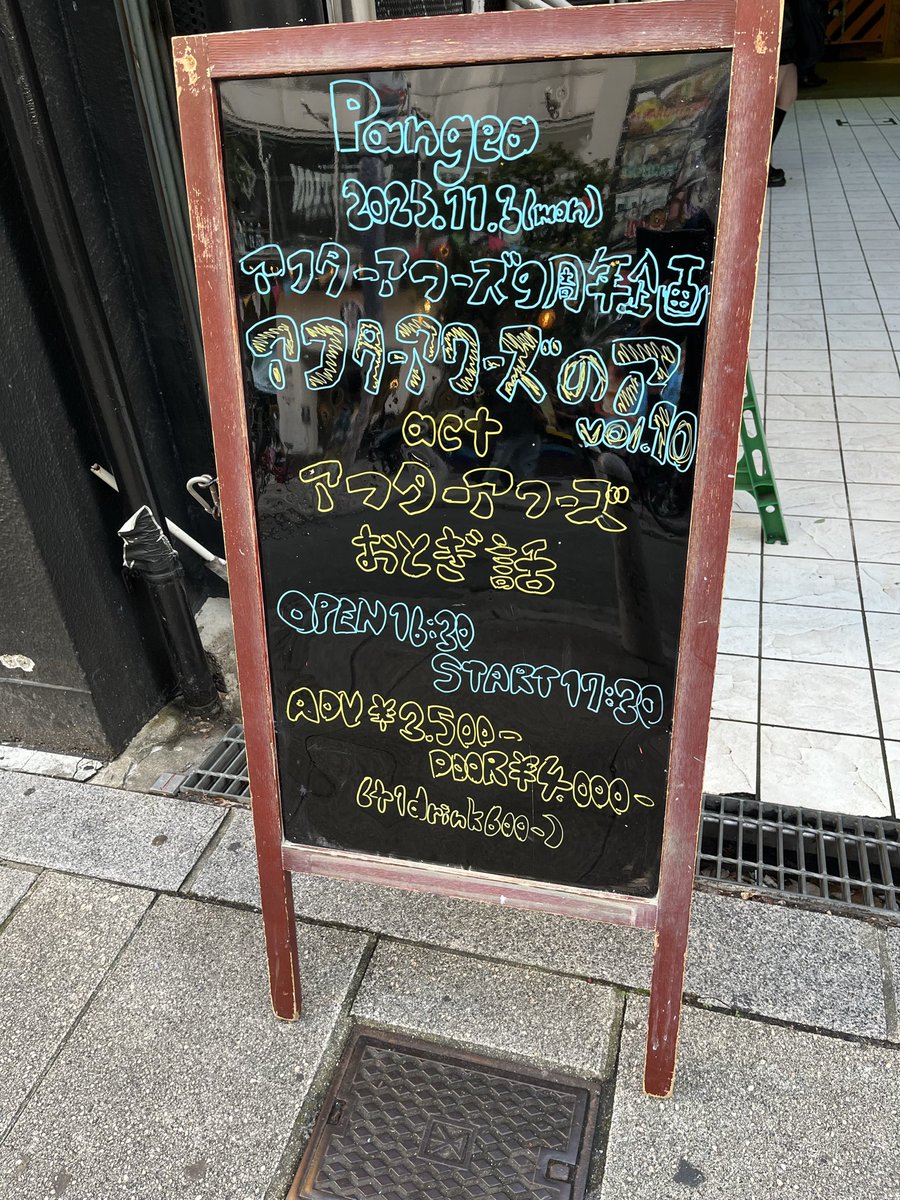 Pangea
2025.11.3(mon)
アフターアワーズ9周年企画
アフターアワーズのア
vol.10
act
アフターアワーズ
おとぎ話
OPEN 16:30
START 17:30
ADV ¥3.500-
DOOR ¥4.000-
(+1drink600-)